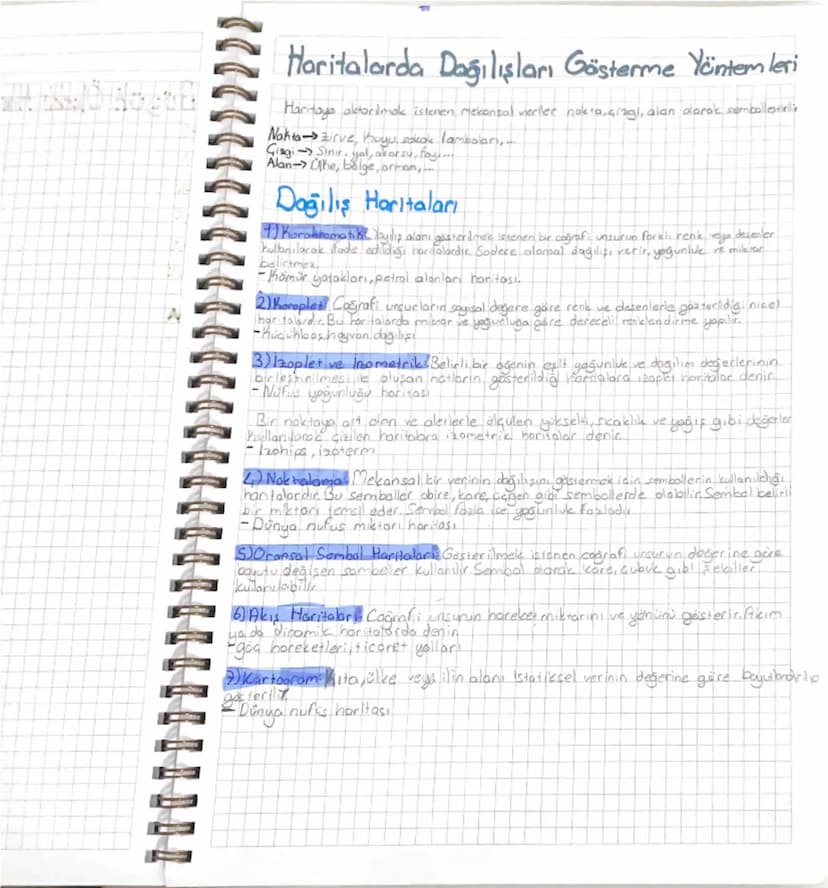 Haritalarda Dağılışları Gösterme Yöntemleri
Haritaya aktarılmak istenen mekansal veriler nokta, çizgi, alan olarak sembolleştirilir.
Nokta→ zirve, kuyu, sokak lambaları,...
Çizgi→ Sınır, yol, akarsu, fay...
Alan→ Ülke, bölge, orman,...
Dağılış Haritaları
1) Korokromatik: Yayılış alanı gösterilmek istenen bir coğrafi unsurun farklı renk veya desenler
kullanılarak ifade edildiği haritalardır. Sadece alansal dağılışı verir, yoğunluk ve miktar
belirtmez.
-Kömür yatakları, petrol alanları haritası.
2) Koroplet: Coğrafi unsurların sayısal değere göre renk ve desenlerle gösterildiği nicel
haritalardır. Bu haritalarda miktar ve yoğunluğa göre dereceli renklendirme yapılır.
-Küçükbaş hayvan dağılışı
3) İzoplet ve İzometrik: Belirli bir öğenin eşit yoğunluk ve dağılım değerlerinin
birleştirilmesi ile oluşan hatların gösterildiği haritalara izoplet haritalar denir.
- Nüfus yoğunluğu haritası
Bir noktaya ait olan ve aletlerle ölçülen yükselti, sıcaklık ve yağış gibi değerler
kullanılarak çizilen haritalara izometrik haritalar denir.
- İzohips, izoterm
4) Noktalama: Mekansal bir verinin dağılışını göstermek için sembollerin kullanıldığı
haritalardır. Bu semboller daire, kare, üçgen gibi sembollerde olabilir. Sembol belirli
bir miktarı temsil eder. Sembol fazla ise yoğunluk fazladır.
- Dünya nüfus miktarı haritası
5) Oransal Sembol Haritaları: Gösterilmek istenen coğrafi unsurun değerine göre
boyutu değişen semboller kullanılır. Sembol olarak kare, çubuk gibi şekiller
kullanılabilir
6) Akış Haritaları: Coğrafi unsurun hareket miktarını ve yönünü gösterir. Akım
ya da dinamik haritalarda denir
-göç hareketleri, ticaret yolları
7) Kartogram: Kıta, ülke veya ilin alanı istatiksel verinin değerine göre
gösterilir.
- Dünya nüfus haritası